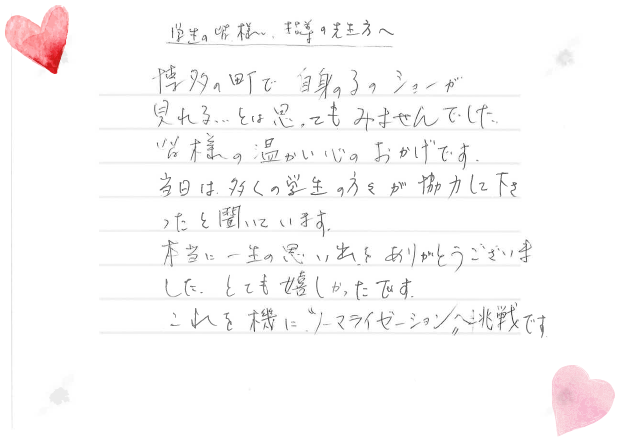 学生の皆様へ、指導の先生方へ
博多の町で 自身のるのショーが
見れる…とは思ってもみませんでした
皆様の温かい心のおかげです。
当日は多くの学生の方々が協力して下さ
ったと聞いています。
本当に一生の思い出をありがとうございま
した。とても嬉しかったです。
これを機に"ノーマライゼーション"へ挑戦です